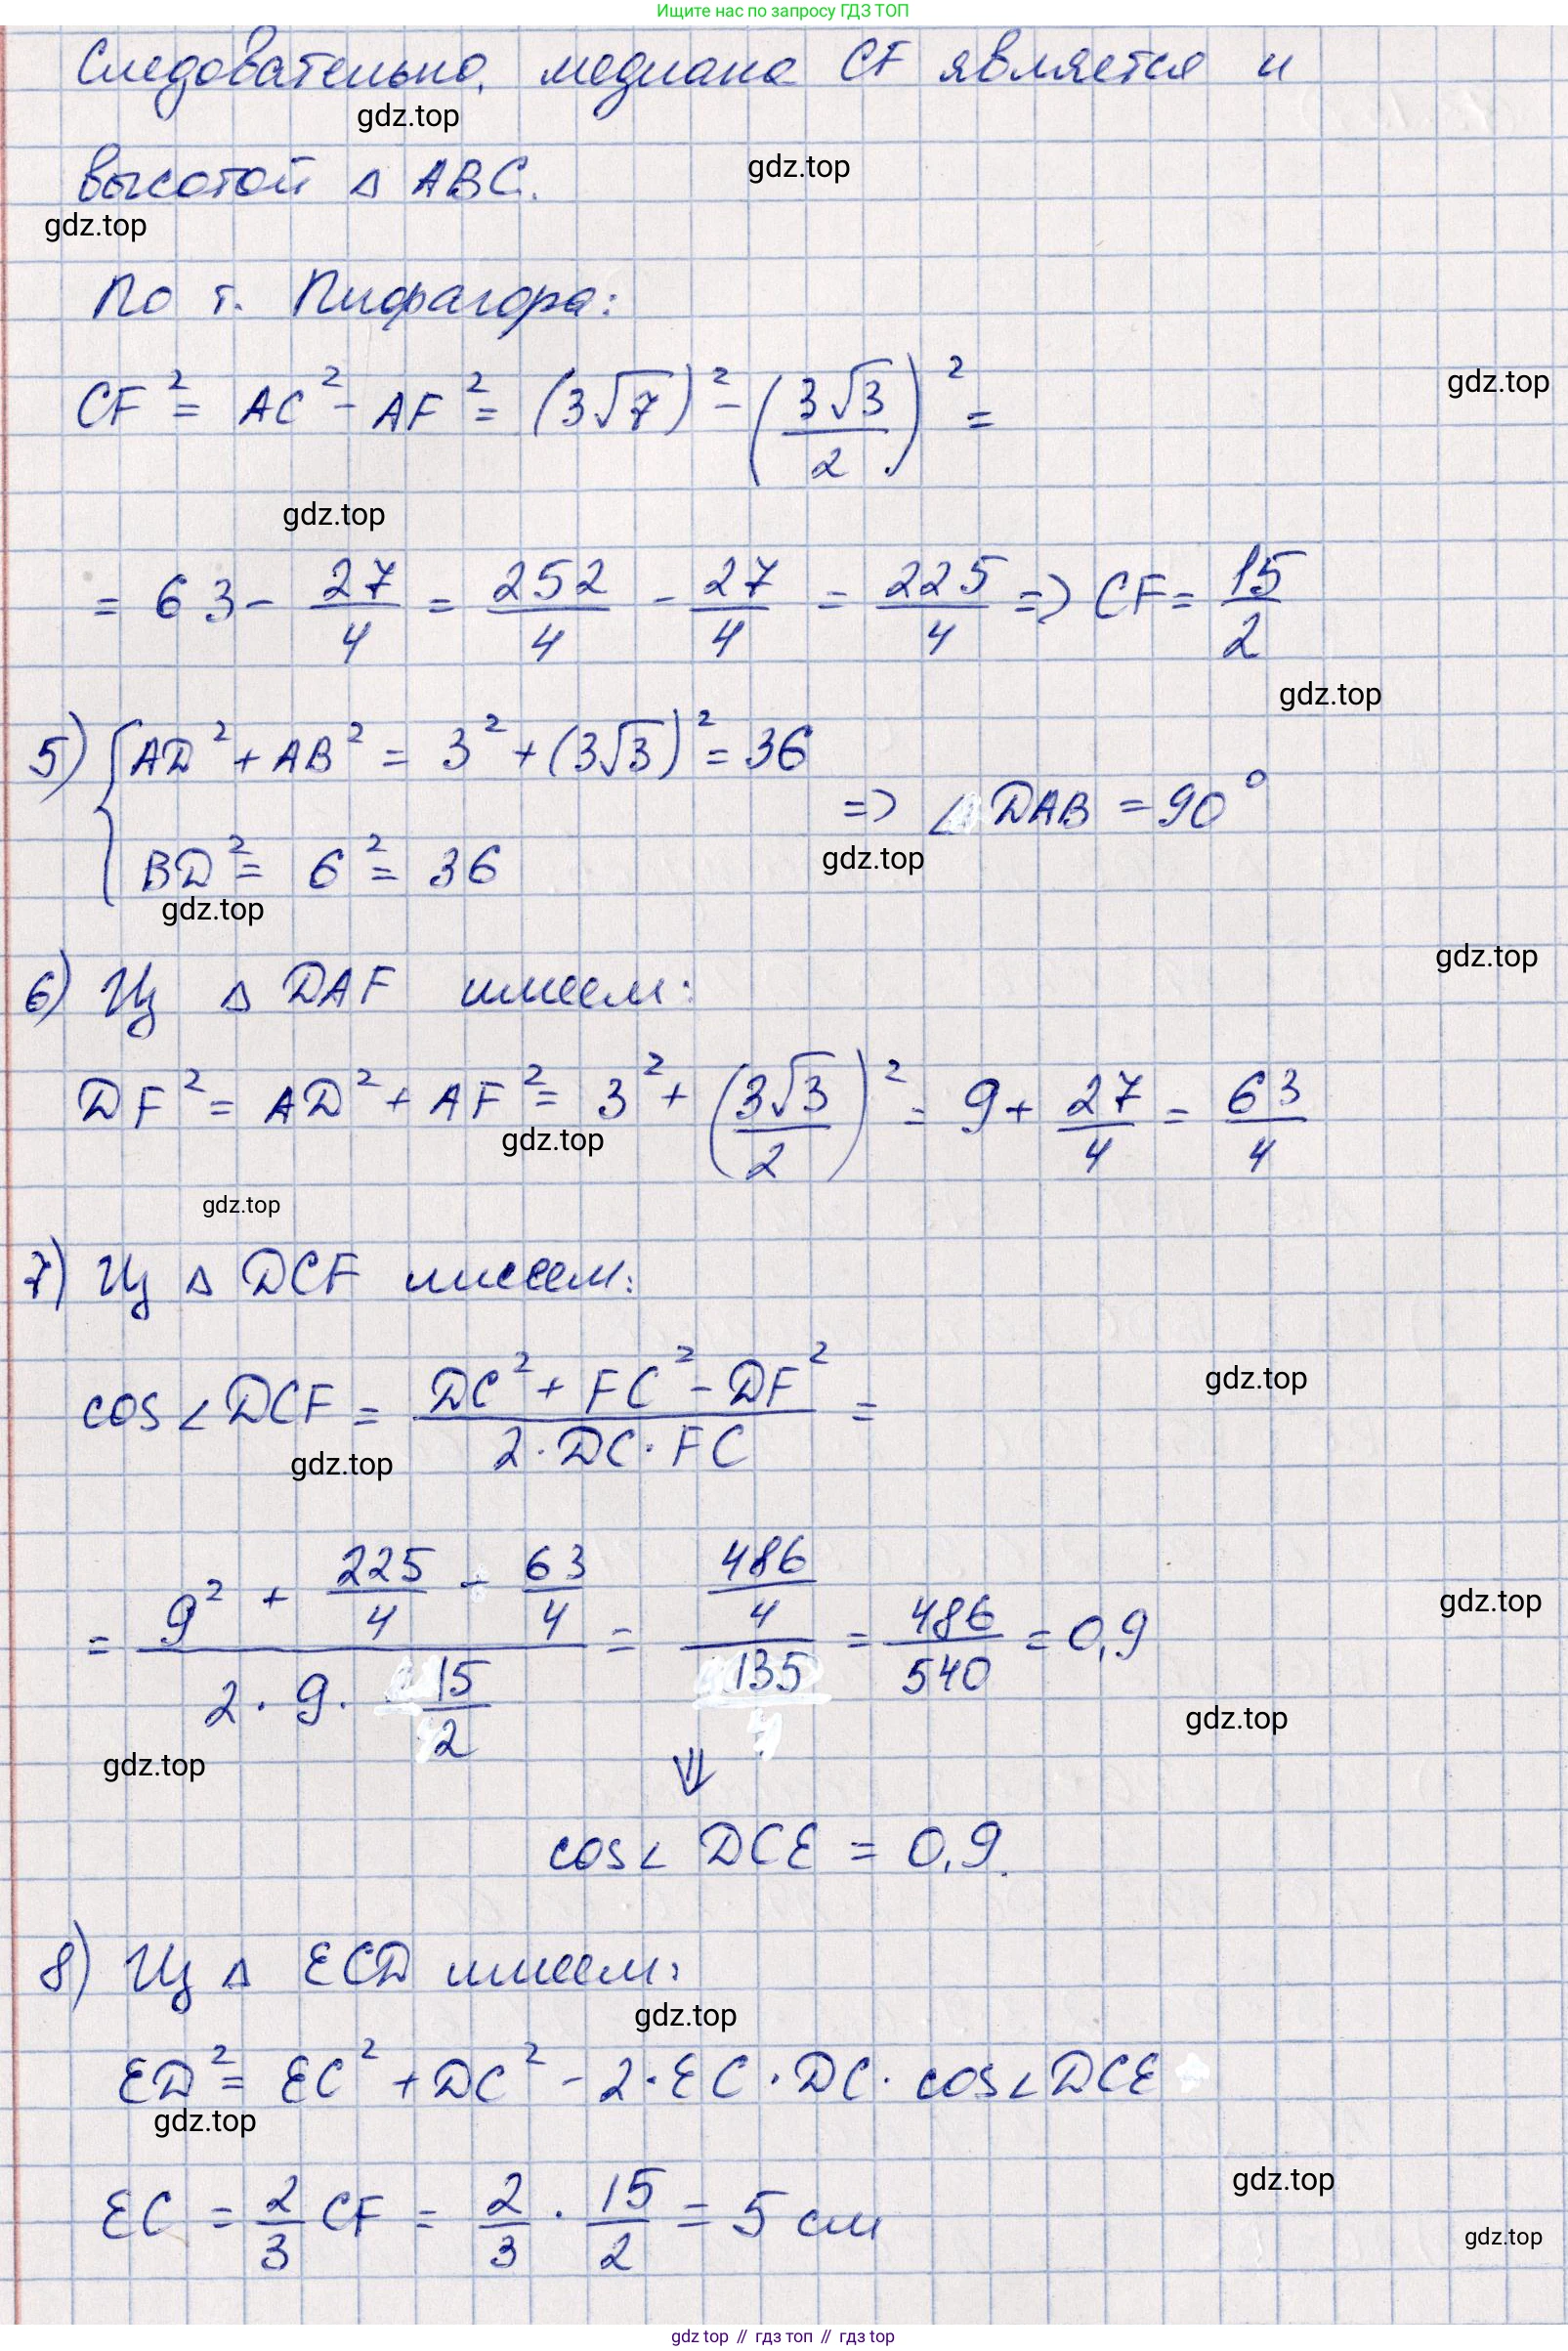 Ищите нас по запросу ГДЗ ТОП
Следовательно, медиана CF является и
gdz.top
высотой △ ABC.
gdz.top
gdz.top
По т. Пифагора:
CF² = AC² - AF² = (3√7)² - (3√3/2)² =
gdz.top
gdz.top
= 63 - 27/4 = 252/4 - 27/4 = 225/4 => CF = 15/2
gdz.top
5) { AD² + AB² = 3² + (3√3)² = 36
BD² = 6² = 36
=> ∠ DAB = 90°
gdz.top
gdz.top
gdz.top
6) Из △ DAF имеем:
DF² = AD² + AF² = 3² + (3√3/2)² = 9 + 27/4 = 63/4
gdz.top
gdz.top
7) Из △ DCF имеем:
cos∠DCF = (DC² + FC² - DF²)/(2·DC·FC) =
gdz.top
gdz.top
= (9² + 225/4 - 63/4)/(2·9·15/2) = (486/4)/135 = 486/540 = 0,9
gdz.top
gdz.top
gdz.top
⇓
cos∠ DCE = 0,9.
8) Из △ ECD имеем:
gdz.top
ED² = EC² + DC² - 2·EC·DC·cos∠DCE
gdz.top
gdz.top
EC = 2/3 CF = 2/3 · 15/2 = 5 см
gdz.top
gdz top // гдз топ // гдз top